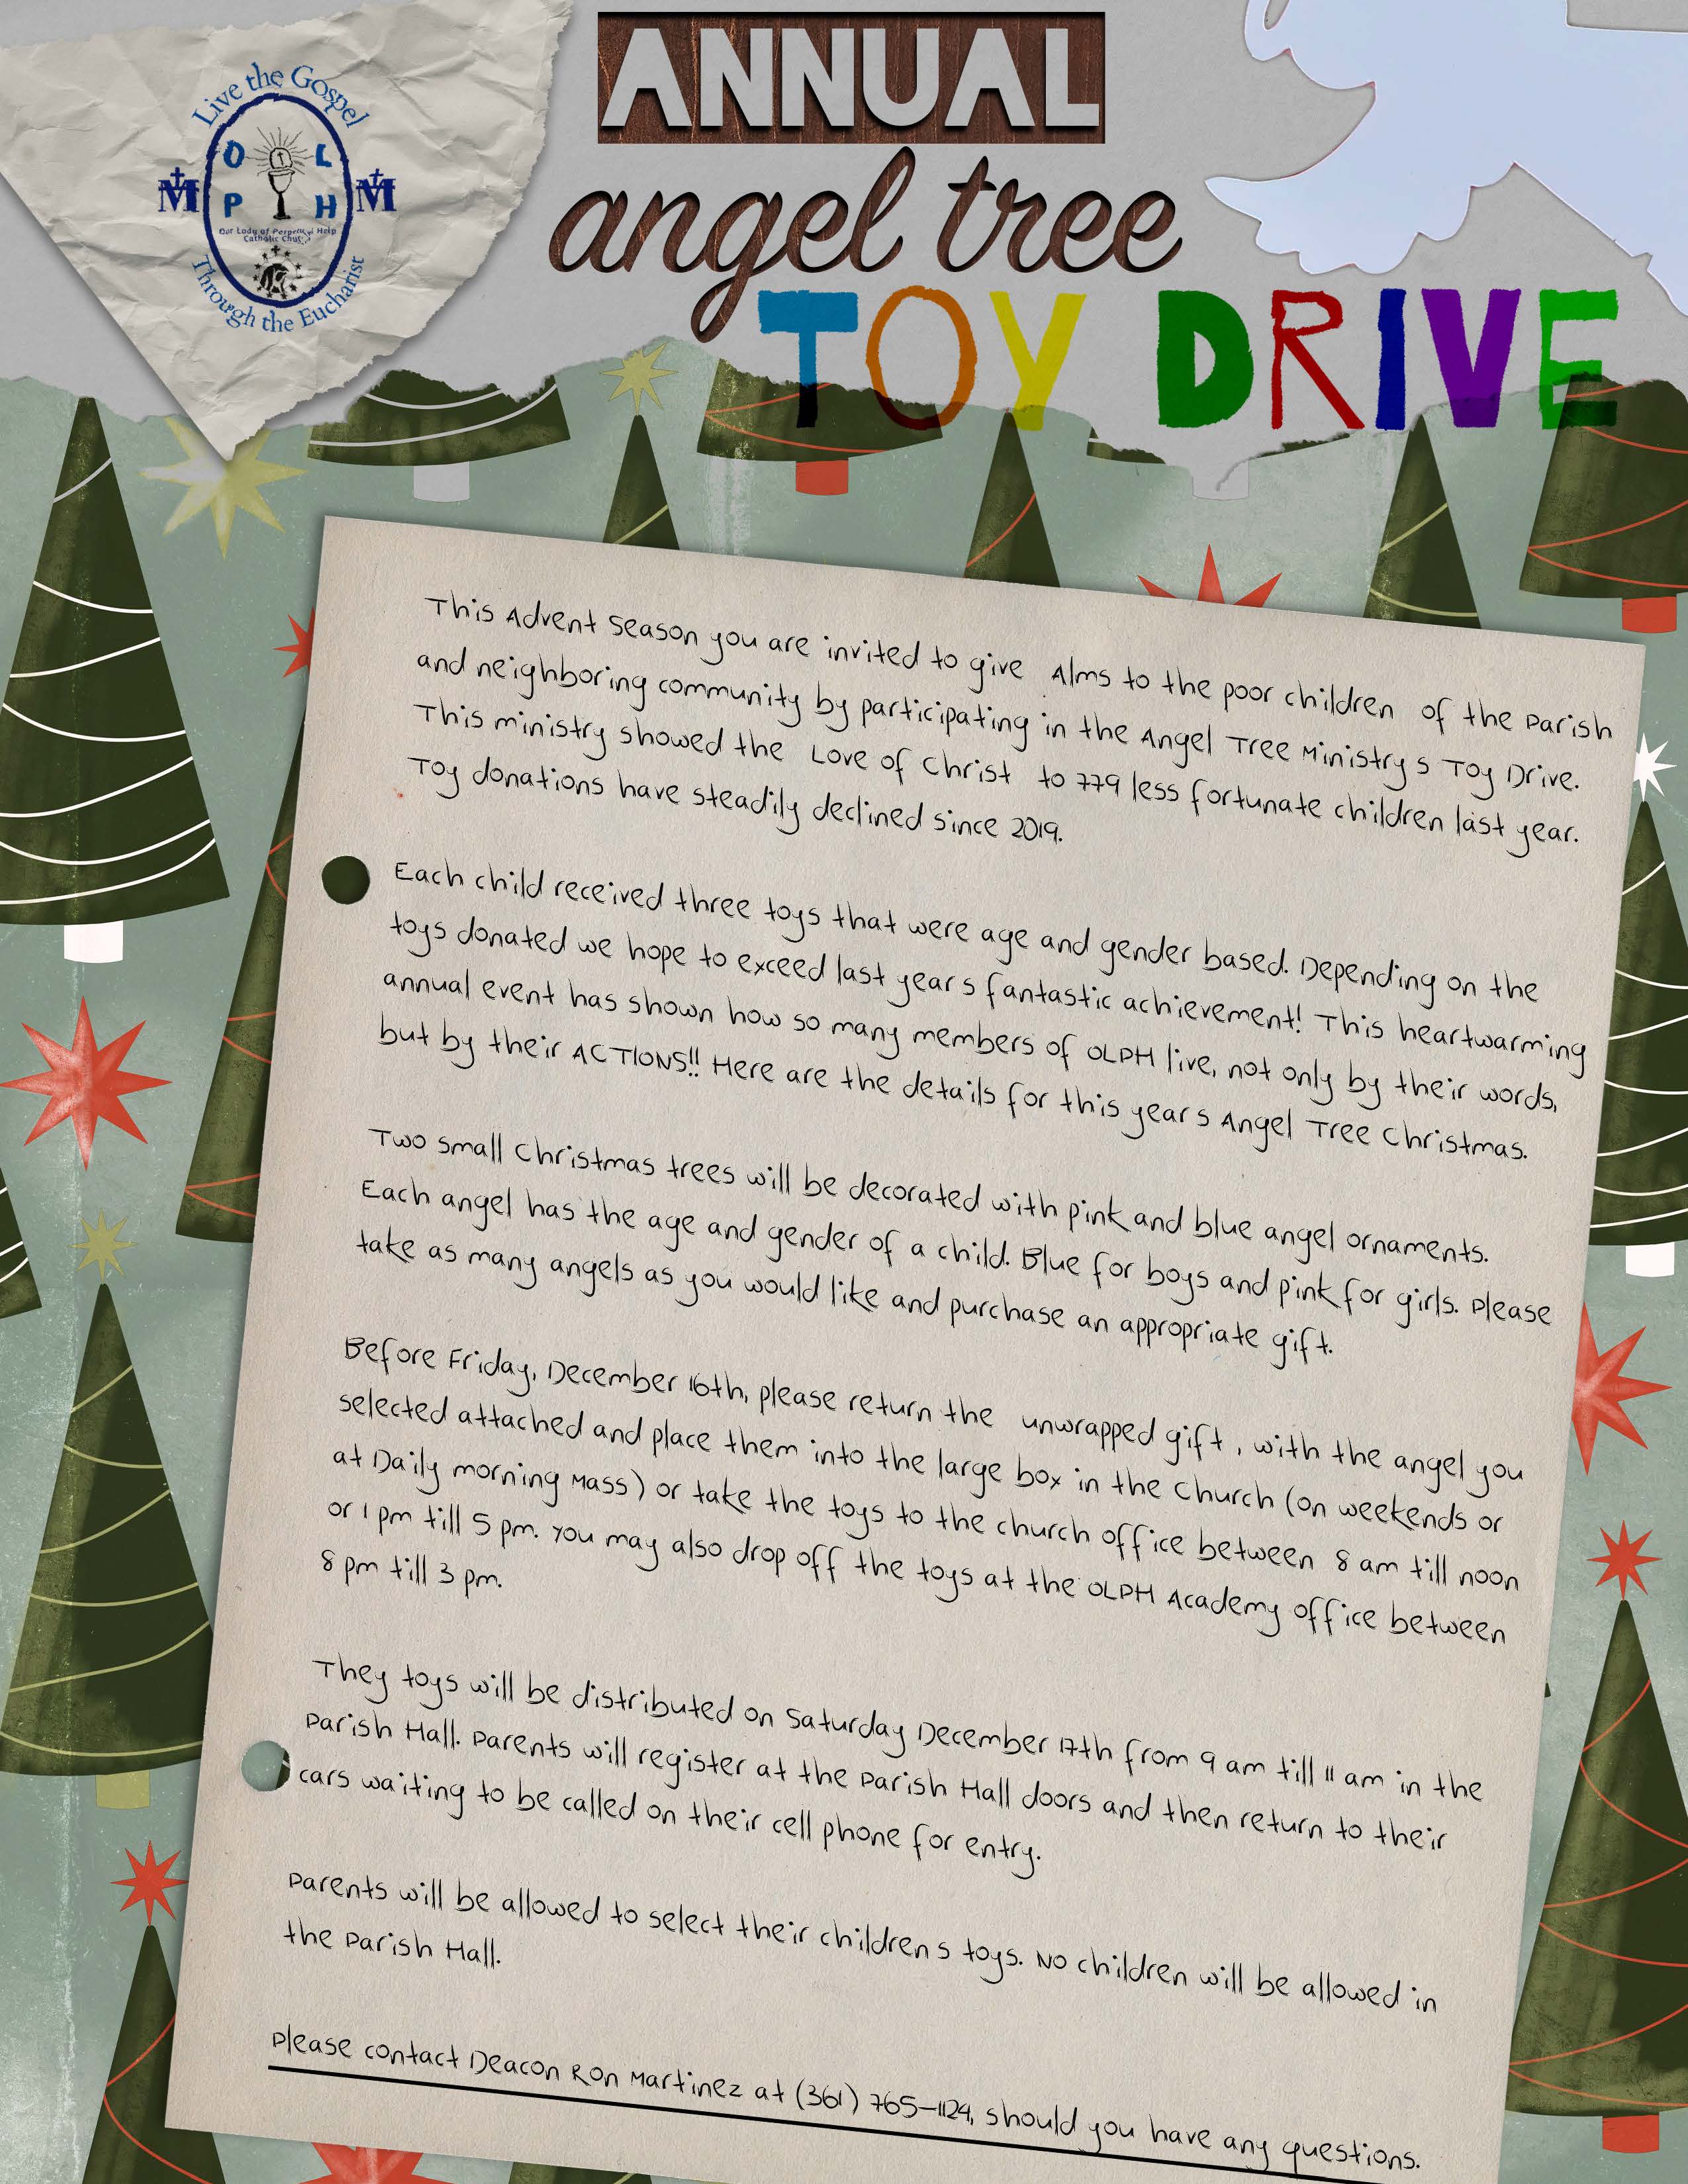 Live the Gospel
O L
P H
M M
Our Lady of Perpetual Help
Catholic Church
Through the Eucharist
ANNUAL
angel tree
TOY DRIVE
This Advent Season you are invited to give Alms to the poor children of the Parish
and neighboring community by participating in the Angel Tree Ministry s Toy Drive.
This ministry showed the Love of Christ to 779 less fortunate children last year.
Toy donations have steadily declined since 2019.
Each child received three toys that were age and gender based. Depending on the
toys donated we hope to exceed last year s fantastic achievement! This heartwarming
annual event has shown how so many members of OLPH live, not only by their words,
but by their ACTIONS!! Here are the details for this year s Angel Tree Christmas.
Two small Christmas trees will be decorated with pink and blue angel ornaments.
Each angel has the age and gender of a child. Blue for boys and pink for girls. Please
take as many angels as you would like and purchase an appropriate gift.
Before Friday, December 16th, please return the unwrapped gift , with the angel you
selected attached and place them into the large box in the Church (on weekends or
at Daily morning Mass) or take the toys to the church office between 8 am till noon
or 1 pm till 5 pm. You may also drop off the toys at the OLPH Academy office between
8 pm till 3 pm.
They toys will be distributed on Saturday December 17th from 9 am till 11 am in the
Parish Hall. Parents will register at the Parish Hall doors and then return to their
cars waiting to be called on their cell phone for entry.
Parents will be allowed to select their children s toys. No children will be allowed in
the Parish Hall.
Please contact Deacon Ron Martinez at (361) 765-1124, should you have any questions.